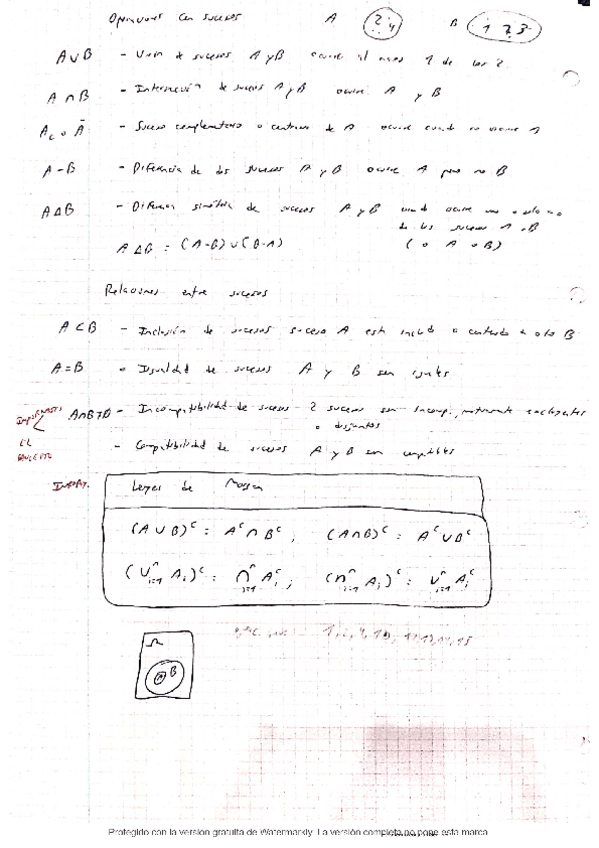 Operaciones con sucesos A 2 4 B 1 2 3
A∪B - Unión de sucesos A y B ocurre al menos 1 de los 2
A∩B - Intersección de sucesos A y B ocurre A y B
Ac o Ā - Suceso complementario o contrario de A ocurre cuando no ocurre A
A-B - Diferencia de dos sucesos A y B ocurre A pero no B
A∆B - Diferencia simétrica de sucesos A y B cuando ocurre uno o solo uno
de los sucesos A o B
A∆B = (A-B)∪(B-A) (o A o B)
Relaciones entre sucesos
A⊂B - Inclusión de sucesos suceso A está incluido o contenido en otro B
A=B Igualdad de sucesos A y B son iguales
- Incompatibilidad de sucesos 2 sucesos son incomp., mutuamente excluyentes
o disjuntos
IMPORTANTE
EL
- Compatibilidad de sucesos A y B son compatibles
IMPORT. Leyes de Morgan
(A∪B)^c = A^c∩B^c, (A∩B)^c = A^c∪B^c
(∪ⁿᵢ₌₁ Aᵢ)^c = ∩ⁿᵢ₌₁ Aᵢ^c; (∩ⁿᵢ₌₁ Aᵢ)^c = ∪ⁿᵢ₌₁ Aᵢ^c
Ω
B
Protegido con la versión gratuita de Watermarkly. La versión completa no pone esta marca.